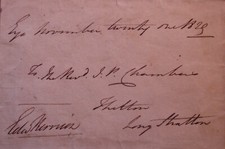 Eye November twenty one 1829
To The Revd J. P. Chambers
Shelton
Long Stratton
Edwd Kerrison